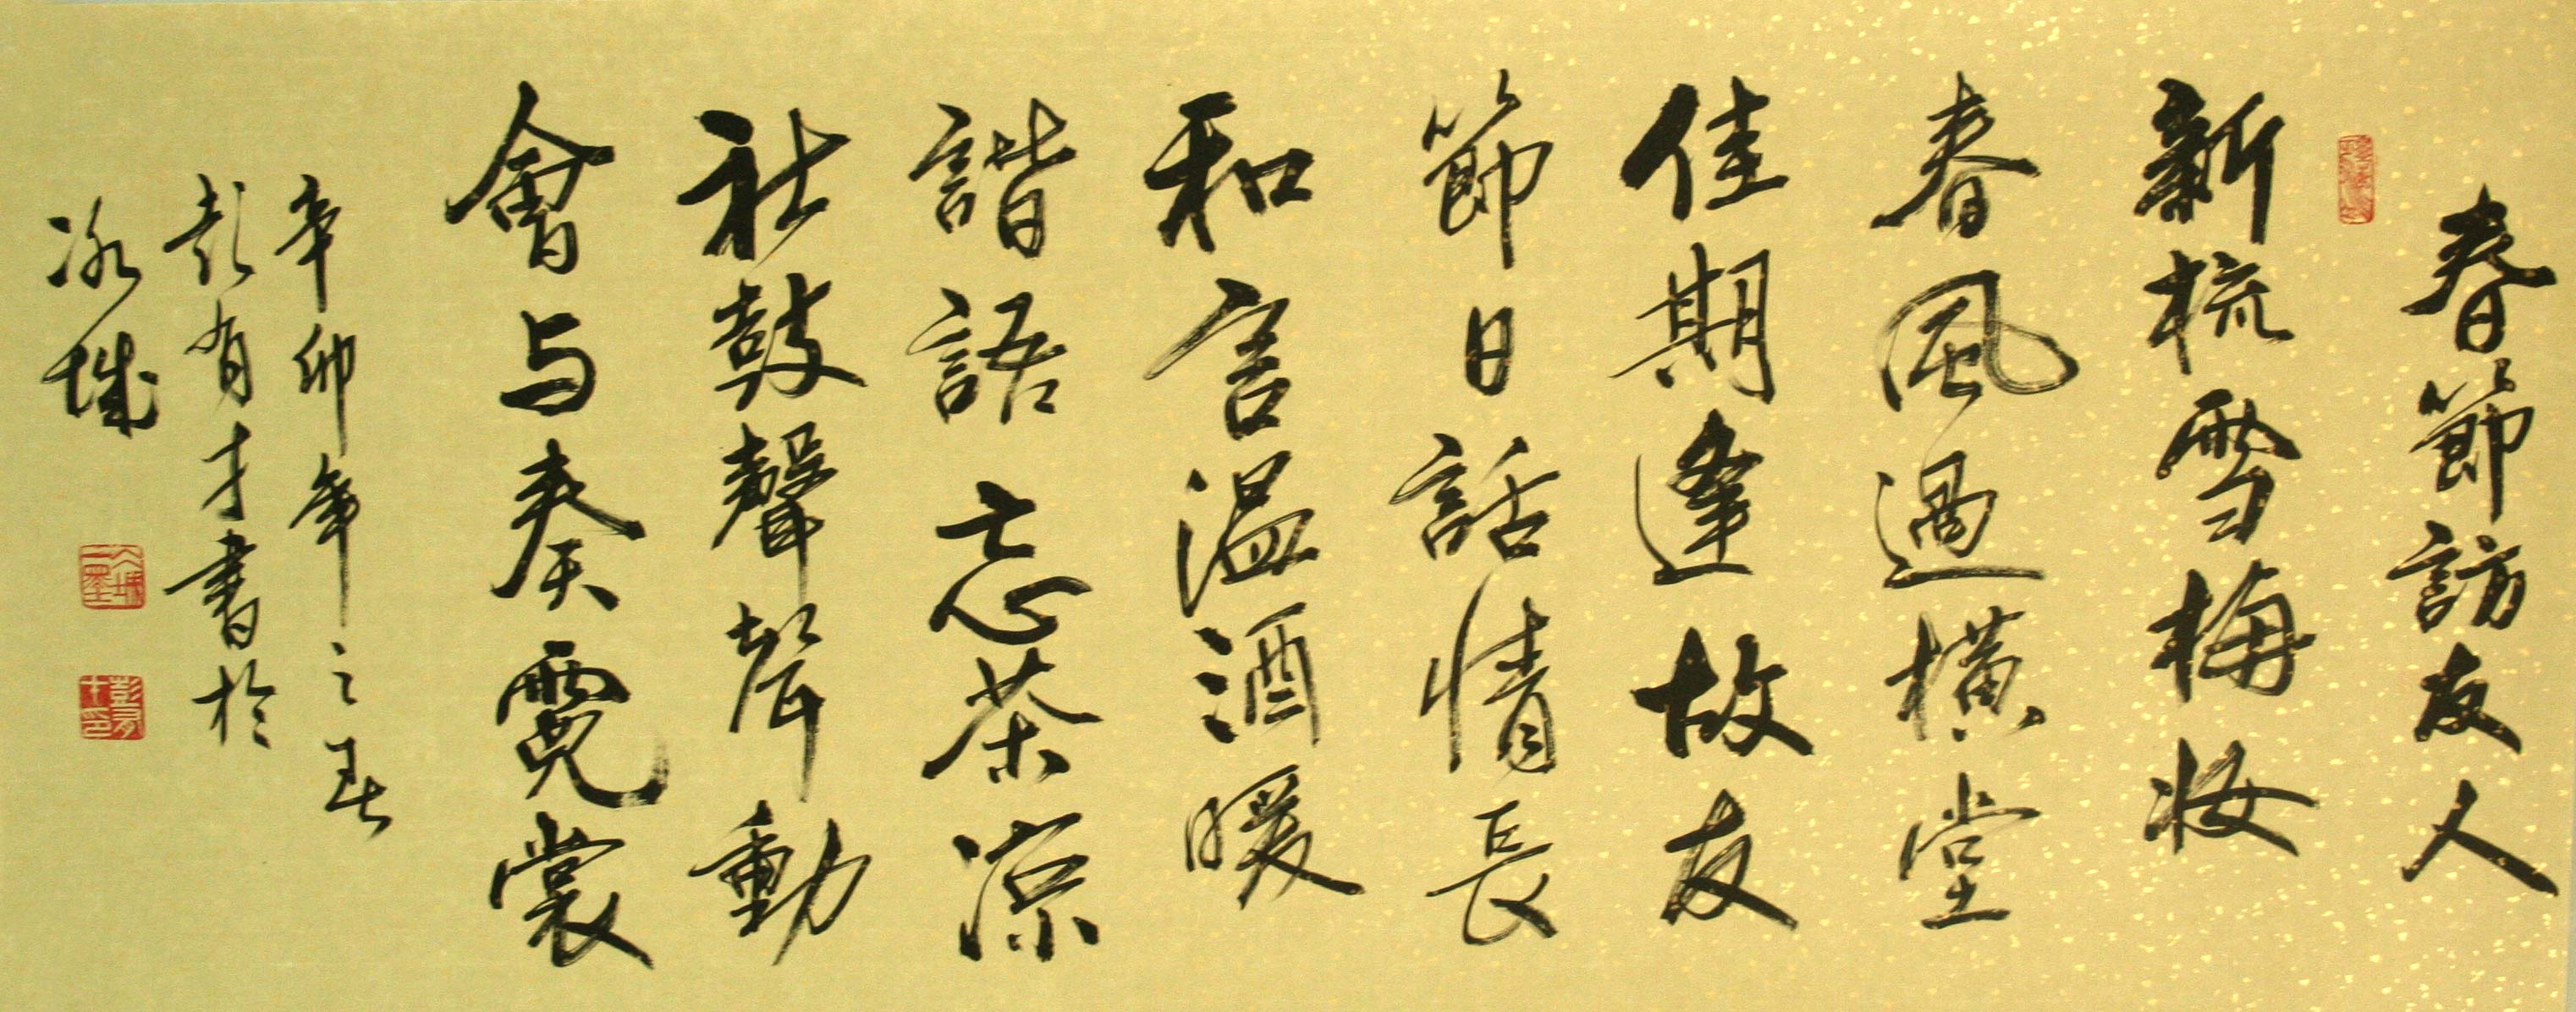 春節訪友人
新梳雪梅妝
春風過橫堂
佳期逢故友
節日話情長
和言溫酒暖
諧語忘茶涼
社鼓聲聲動
會与奏霓裳
辛卯年之春
彭有才書於
冰城